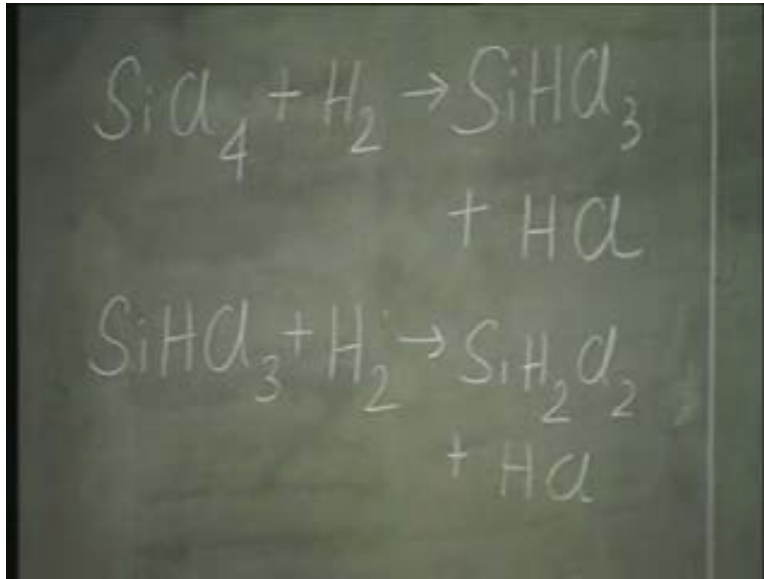 SiCl₄ + H₂ → SiHCl₃
+ HCl
SiHCl₃ + H₂ → SiH₂Cl₂
+ HCl